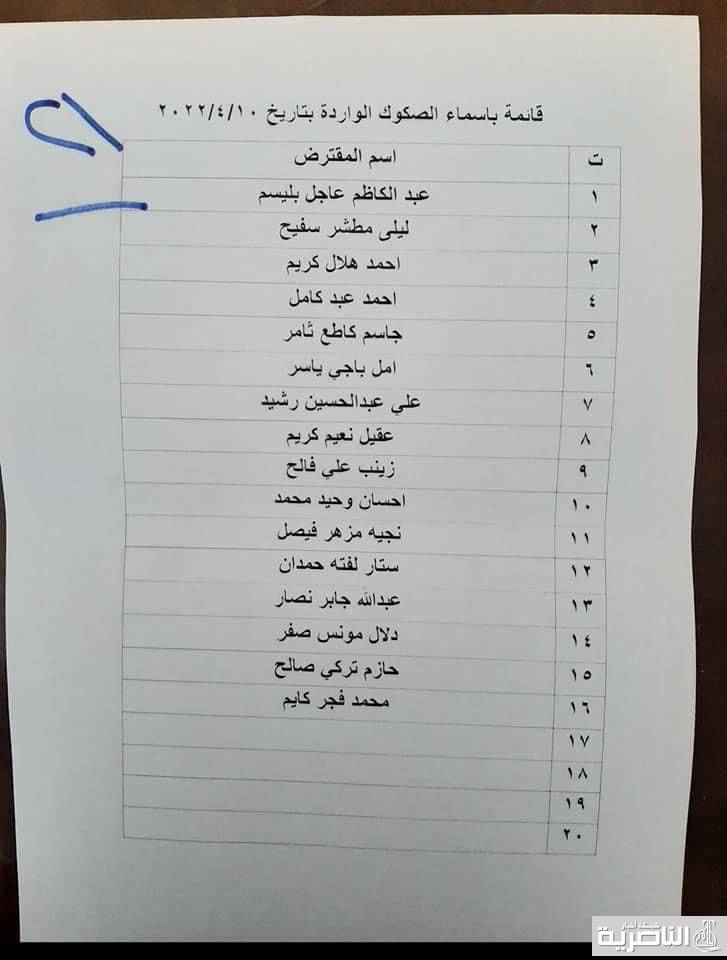 قائمة باسماء الصكوك الواردة بتاريخ ٢٠٢٢/٤/١٠
ت اسم المقترض
١ عبد الكاظم عاجل بليسم
٢ ليلى مطشر سفيح
٣ احمد هلال كريم
٤ احمد عبد كامل
٥ جاسم كاطع ثامر
٦ امل باجي ياسر
٧ علي عبدالحسين رشيد
٨ عقيل نعيم كريم
٩ زينب علي فالح
١٠ احسان وحيد محمد
١١ نجيه مزهر فيصل
١٢ ستار لفته حمدان
١٣ عبدالله جابر نصار
١٤ دلال مونس صفر
١٥ حازم تركي صالح
١٦ محمد فجر كايم
١٧
١٨
١٩
٢٠
شبكة أخبار
الناصرية